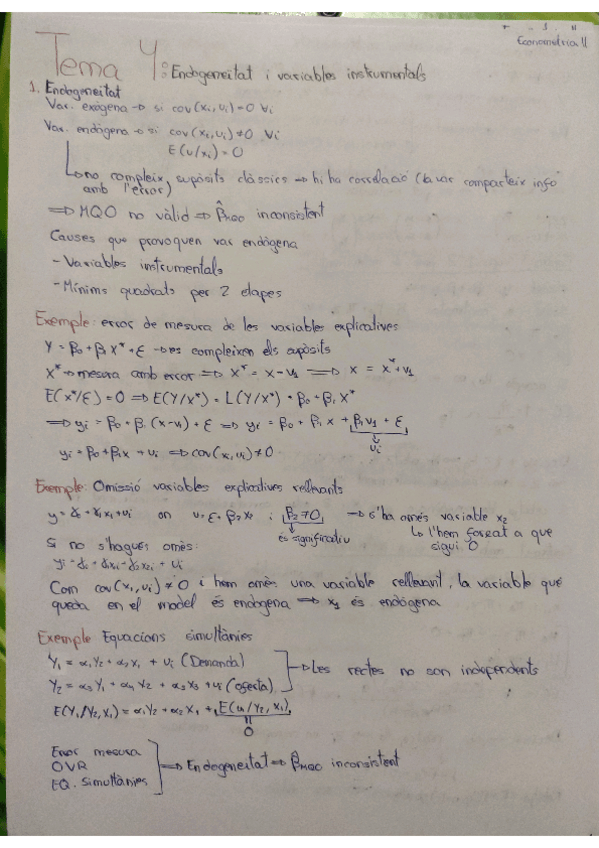 Econometria II
Tema 4: Endogeneitat i variables instrumentals
1. Endogeneitat
Var. exògena → si cov(xᵢ,uᵢ)=0 ∀i
Var. endògena → si cov(xᵢ,uᵢ)≠0 ∀i
E(u/xᵢ)=0
no compleix supòsits clàssics → hi ha correlació (la var comparteix info
amb l'error)
⇒ MQO no vàlid ⇒ β̂MQO inconsistent
Causes que provoquen var endògena
- Variables instrumentals
- Mínims quadrats per 2 etapes
Exemple: error de mesura de les variables explicatives
Y = β₀ + β₁ X* + ε → es compleixen els supòsits
X* → mesura amb error ⇒ X* = x - v₁ ⇒ x = x* + v₁
E(x*/ε) = 0 ⇒ E(Y/x*) = L(Y/x*) = β₀ + β₁ X*
⇒ yᵢ = β₀ + β₁ (x-v₁) + ε ⇒ yᵢ = β₀ + β₁x + β₁v₁ + ε
uᵢ
yᵢ = β₀ + β₁x + uᵢ ⇒ cov(x,uᵢ) ≠ 0
Exemple: Omissió variables explicatives rellevants
y = δ₀ + δ₁x₁ + uᵢ on u = ε + β₂x₂ i β₂≠0 → s'ha omès variable x₂
és significatiu l'hem forçat a que
sigui 0
Si no s'hagués omès:
yᵢ = δ₀ + δx₁ + δ₂x₂ᵢ + uᵢ
Com cov(x₁,uᵢ) ≠ 0 i hem omès una variable rellevant, la variable que
queda en el model és endògena ⇒ x₁ és endògena
Exemple Equacions simultànies
Y₁ = α₁Y₂ + α₂x₁ + uᵢ (Demanda)
→ Les rectes no son independents
Y₂ = α₃Y₁ + α₄Y₂ + α₅x₃ + uᵢ (oferta)
E(Y₁/Y₂,x₁) = α₁Y₂ + α₂x₁ + E(u₁/Y₂,x₁)
0
Error mesura
OVR
⇒ Endogeneitat ⇒ β̂MQO inconsistent
EQ. Simultànies